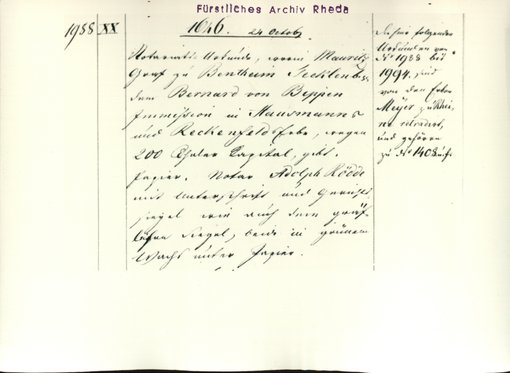 Fürstliches Archiv Rheda
1988
XX
1646. 24 Octob
Notariats-Urkunde, worin Mauritz
Graf zu Bentheim Tecklenb.
dem Bernard von Beppen
Immission in Hausmanns
und Reckenfelds Erbe, wegen
200 Thaler Capital, gibt.
Papier. Notar Adolph Rödde
mit Unterschrift und Gerichts
siegel wie auch dem gräf
lichen Siegel, beide in grünem
Wachs unter Papier.
Die hier folgenden
Urkunden von
No 1988 bis
1994 sind
von den Erben
Meyer zu
retradirt,
und gehören
zu No 1408